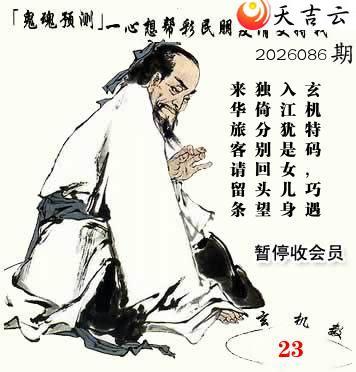 天吉云
「鬼魂预测」一心想帮彩民朋
2026086期
玄机特码，巧遇
入江犹是女儿身
独倚分别回头望
来华旅客请留条
暂停收会员
玄机数
23